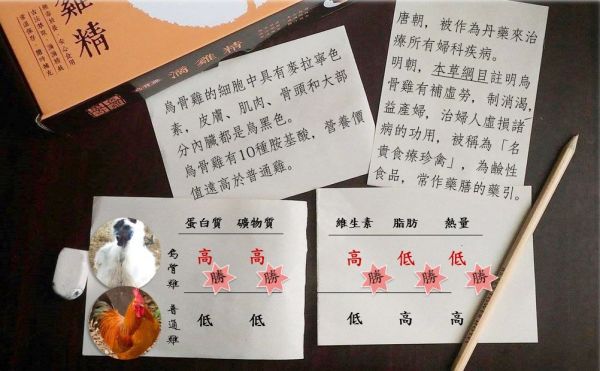 滴雞精
雞精
烏骨雞的細胞中具有麥拉寧色
素，皮膚、肌肉、骨頭和大部
分內臟都是烏黑色。
烏骨雞有10種胺基酸，營養價
值遠高於普通雞。
唐朝，被作為丹藥來治
療所有婦科疾病。
明朝，本草綱目註明烏
骨雞有補虛勞，制消渴，
益產婦，治婦人虛損諸
病的功用，被稱為「名
貴食療珍禽」，為鹼性
食品，常作藥膳的藥引。
蛋白質 礦物質
烏骨雞 高 勝 高 勝
普通雞 低 低
維生素 脂肪 熱量
高 勝 低 勝 低 勝
低 高 高